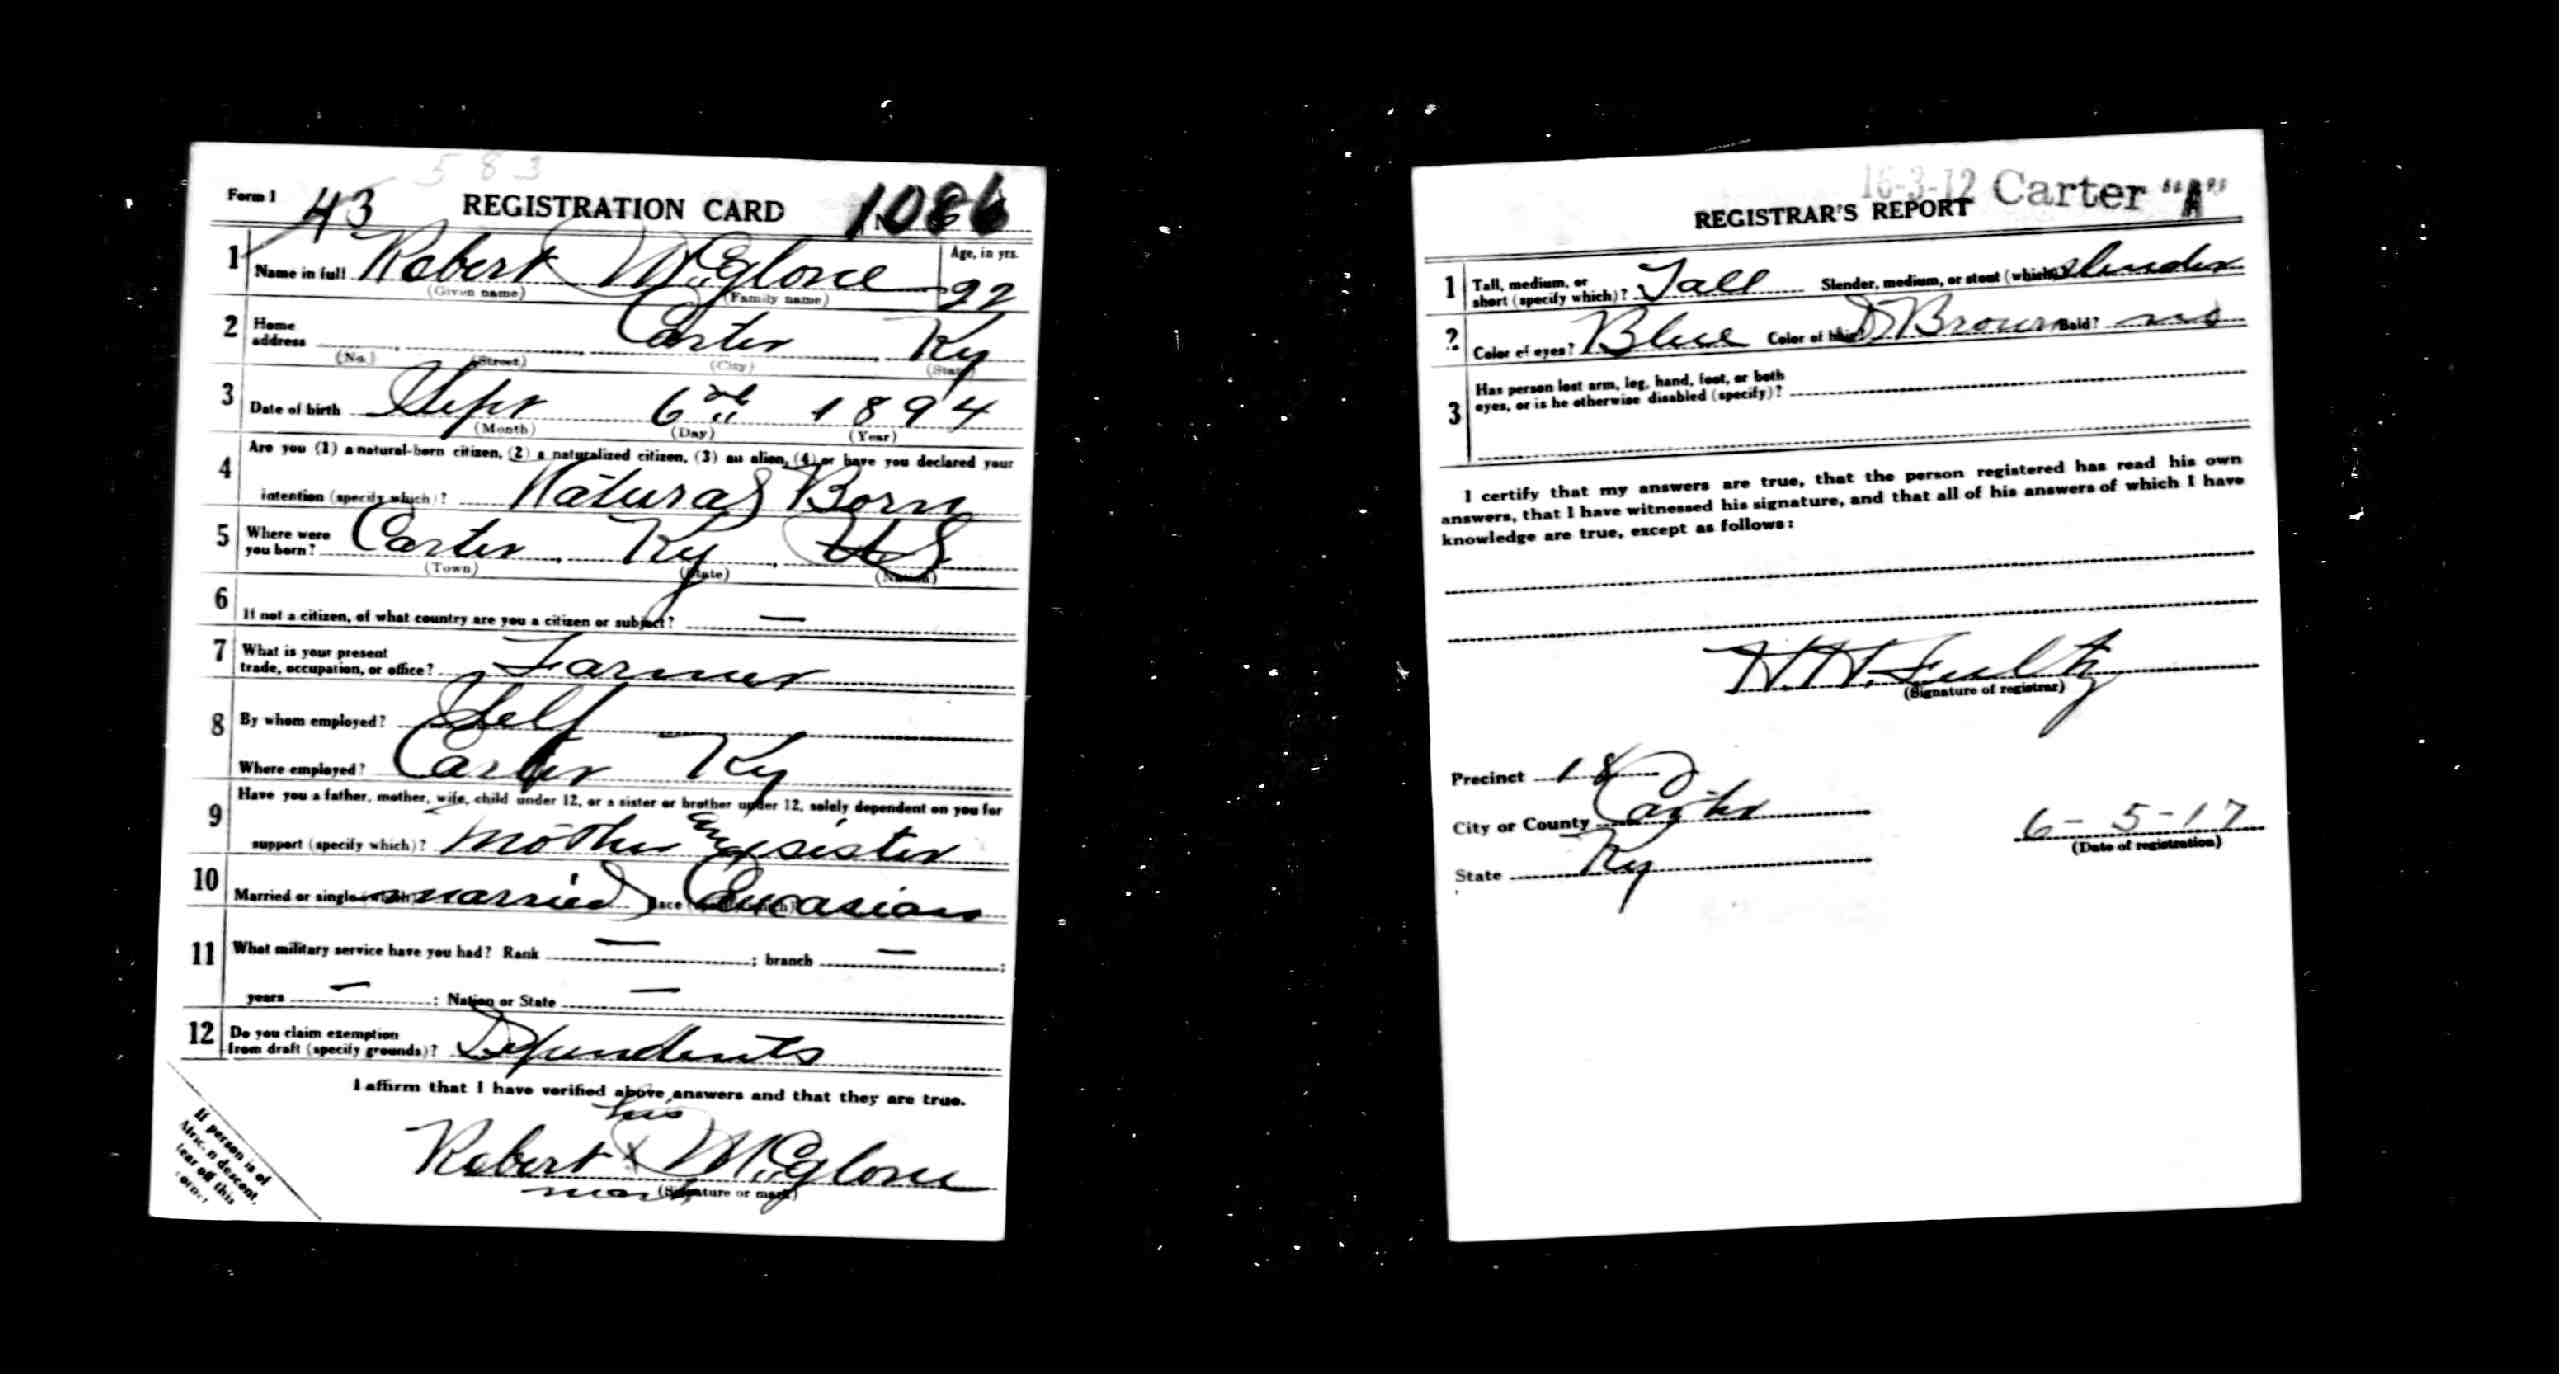 583
Form 1 43 REGISTRATION CARD No. 1086
1 Name in full Robert McGlone Age, in yrs. 22
(Given name) (Family name)
2 Home address Carter Ky
(No.) (Street) (City) (State)
3 Date of birth Sept 6th 1894
(Month) (Day) (Year)
4 Are you (1) a natural-born citizen, (2) a naturalized citizen, (3) an alien, (4) or have you declared your
intention (specify which)? Natural Born
5 Where were you born? Carter Ky US
(Town) (State) (Nation)
6 If not a citizen, of what country are you a citizen or subject? —
7 What is your present trade, occupation, or office? Farmer
8 By whom employed? Self
Where employed? Carter Ky
9 Have you a father, mother, wife, child under 12, or a sister or brother under 12, solely dependent on you for
support (specify which)? Mother and sister
10 Married or single (which)? married Race (specify which)? Caucasian
11 What military service have you had? Rank — ; branch — ;
years — ; Nation or State —
12 Do you claim exemption from draft (specify grounds)? Dependents
I affirm that I have verified above answers and that they are true.
his
Robert X McGlone
mark (Signature or mark)
If person is of
African descent,
tear off this
corner
16-3-12 Carter "A"
REGISTRAR'S REPORT
1 Tall, medium, or short (specify which)? Tall Slender, medium, or stout (which)? slender
2 Color of eyes? Blue Color of hair? D Brown Bald? no
3 Has person lost arm, leg, hand, foot, or both
eyes, or is he otherwise disabled (specify)?
I certify that my answers are true, that the person registered has read his own
answers, that I have witnessed his signature, and that all of his answers of which I have
knowledge are true, except as follows:
H. H. Fultz
(Signature of registrar)
Precinct 18
City or County Carter
6-5-17
(Date of registration)
State Ky